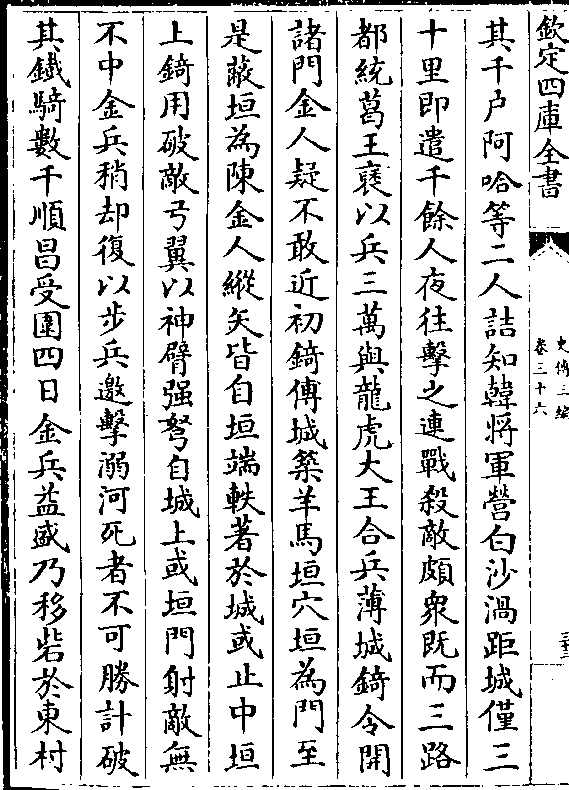 欽定四庫全書
史傳三編
卷三十六
其千户阿哈等二人詰知韓將軍營白沙渦距城僅三
十里即遣千餘人夜往擊之連戰殺敵頗衆既而三路
都統葛王褎以兵三萬與龍虎大王合兵薄城錡令開
諸門金人疑不敢近初錡傅城築羊馬垣穴垣為門至
是蔽垣為陳金人縱矢皆自垣端軼著於城或止中垣
上錡用破敵弓翼以神臂强弩自城上或垣門射敵無
不中金兵稍却復以步兵邀擊溺河死者不可勝計破
其鐵騎數千順昌受圍四日金兵益盛乃移砦於東村